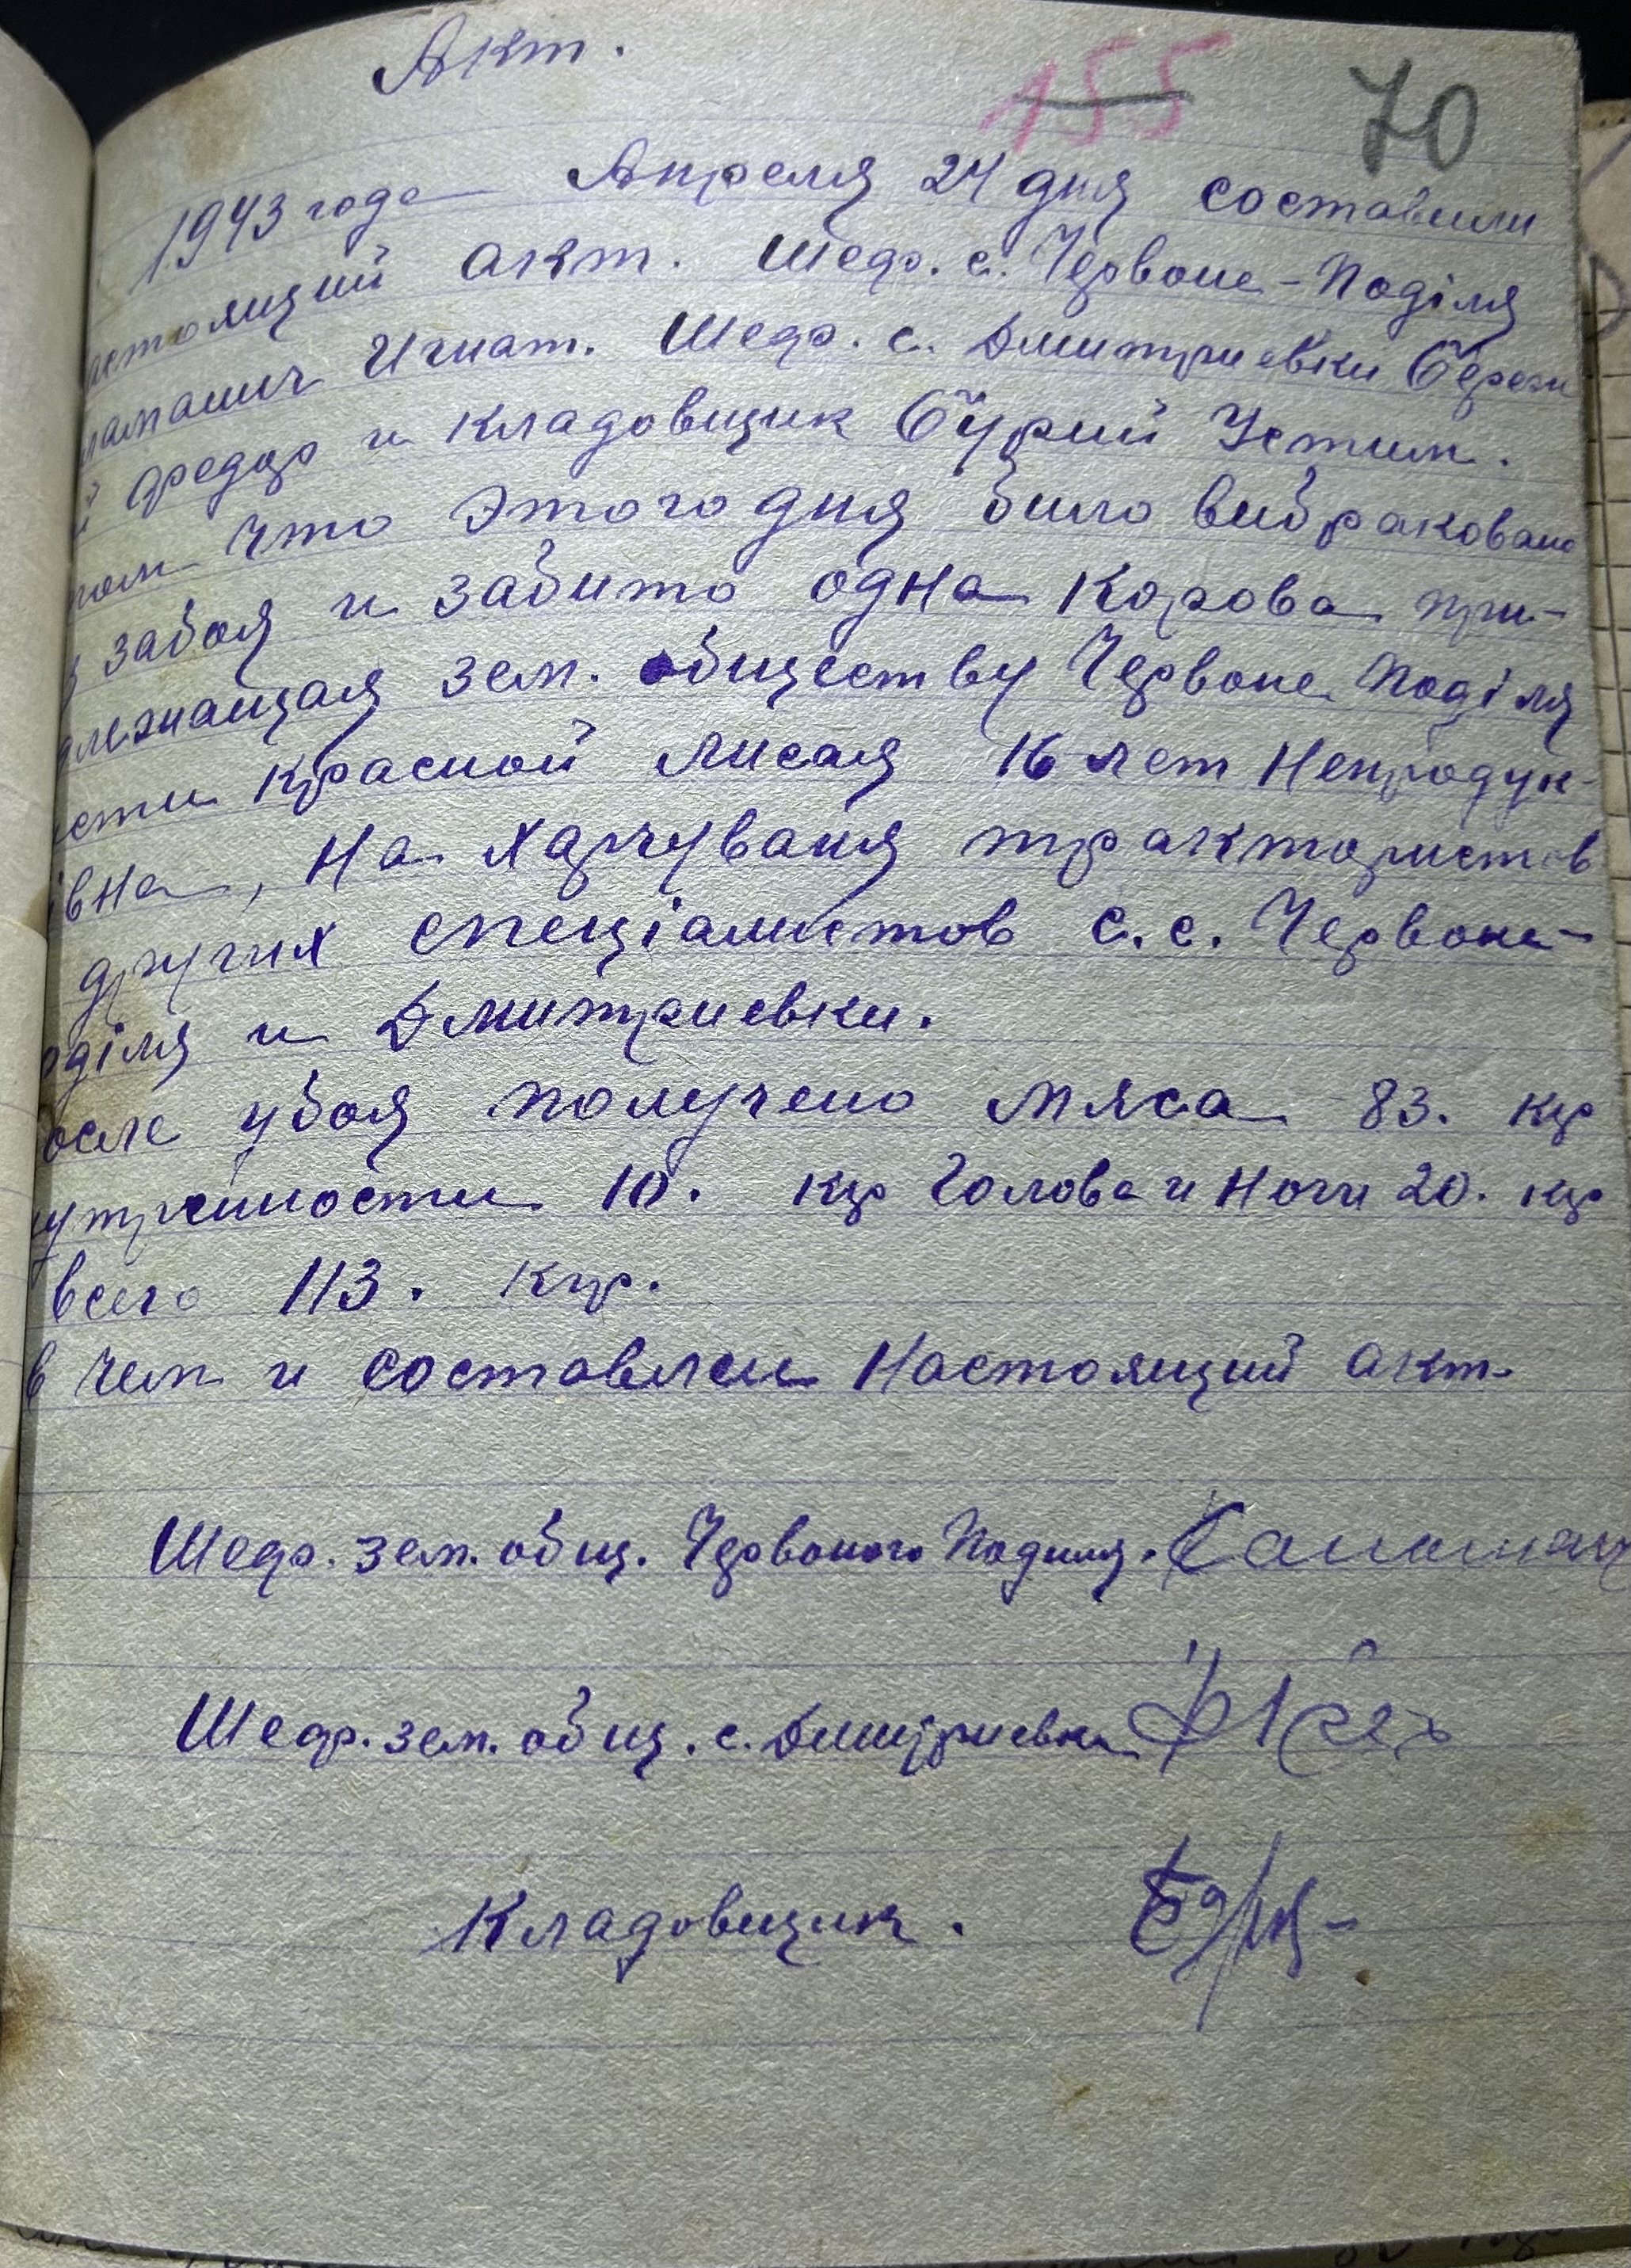 Акт.
155 70
1943 года Апреля 24 дня составили
астоящий акт. Шефр. с. Червоне-Поділя
Игнат. Шефр. с. Дмитриевки Береж
й Федор и кладовщик Бурий Устим.
том что этого дня било вибраковано
забоя и забито одна корова при-
длежащая зем. обществу Червоне Поділя
сти красной лисая 16 лет непродук-
івна, на харчуваня трактористов
других спеціалистов с.с. Червоне-
оділя и Дмитриевки.
осле убоя получено мяса 83. кгр
нутреності 10. кгр Голова и Ноги 20. кгр
всего 113. кгр.
в чем и составлен Настоящий акт.
Шефр. зем. общ. Червоного Подиля.
Шефр. зем. общ. с. Дмитриевки
Кладовщик.